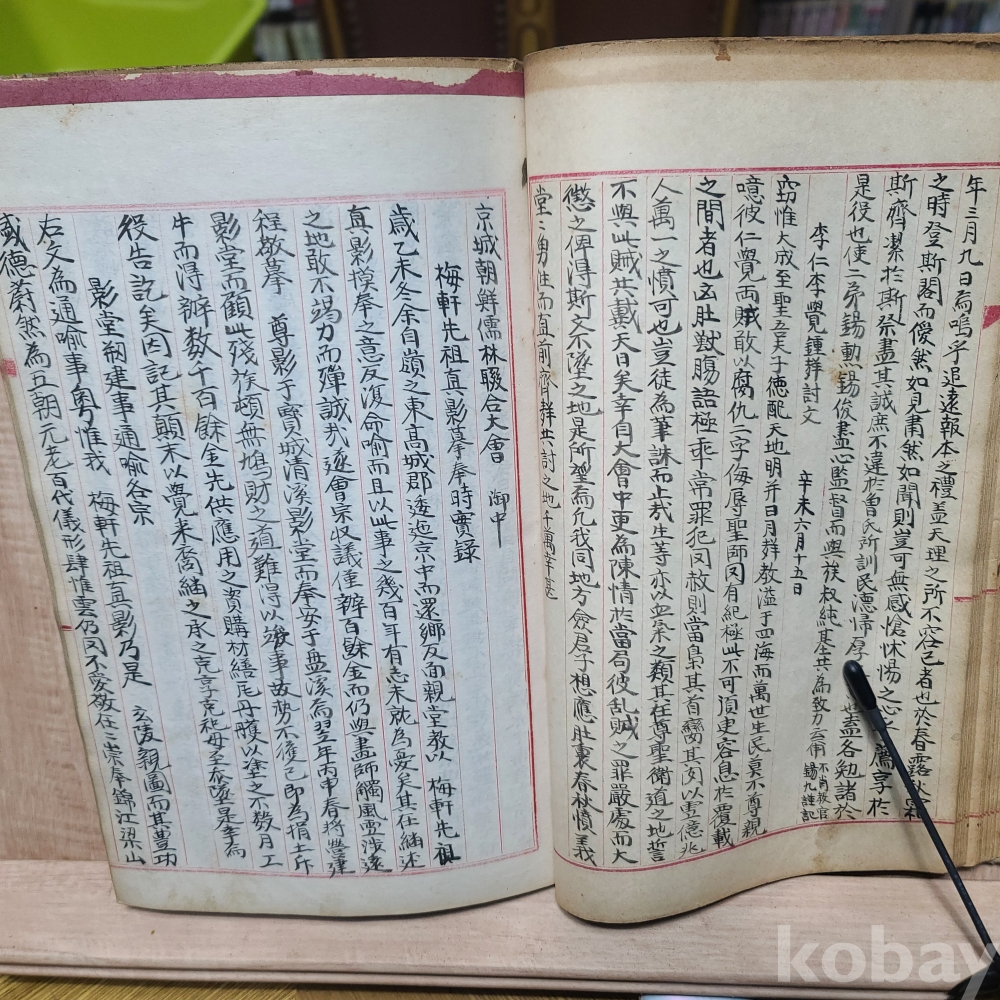 年三月九日為嗚乎追遠報本之禮盖天理之所不容已者也於春露秋霜
之時登斯閣而僾然如見肅然如聞則豈可無感愴怵惕之心 薦享於
斯齊潔於斯祭盡其誠庶不違於曾氏所訓民德歸厚 也盖各勉諸於
是役也使二弟錫勲錫俊盡心監督而與族叔純基共為致力云爾 不肖 錫九謹記
李仁李覺鍾等討文 辛未六月十五日
窃惟大成至聖五夫子德配天地明并日月教溢于四海而萬世生民莫不尊親
噫彼仁覺兩賊敢以腐仇二字侮辱聖師罔有紀極此不可頂史容息於覆載
之間者也 肚獣腸語極乖常罪犯罔赦則當梟其首臠其 以雪億兆
人萬一之憤可也豈徒為筆誅而止哉生等亦以血氣之類其在尊聖衛道之地誓
不與此賊共戴天日矣幸自大會中更為陳情於當局彼乱賊之罪嚴處而大
懲之俾得斯文不墜之地是所望為凡我同地方僉君子想應肚裏春秋憤義
堂二勇往而直前齊群共討之地千萬幸甚
京城朝鮮儒林聯合大會 御中
梅軒先祖真影摹奉時實錄
歳乙未冬余自嶺之東高城郡逶迆京中而還鄉反面親堂教以 梅軒先祖
真影模奉之意反復命喻而且以此事之幾百年有志未就為憂矣其在紬述
之地敢不竭力而殫誠哉遂會宗收議僅辦百餘金而仍與畵師觸風雪涉遠
程敬摹 尊影于寶城清溪影堂而奉安于盘溪為翌年丙申春将營建
影堂而顧此殘族頓無鳩財之道難得以竣事故勢不後已即為捐土斥
牛而得辦数千百餘金先供應用之資購材繕瓦丹雘以塗之不数月工
役告訖矣因記其顛末以覺来裔紬之承之克享克祀毋至忝墜是幸為
影堂刱建事通喻各宗
右文為通喻事粵惟我 梅軒先祖真影乃是 玄陵親圖而其豊功
盛德蔚然為五朝元老百代儀形肆惟雲仍罔不愛敬在三崇奉錦江梁山
kobay